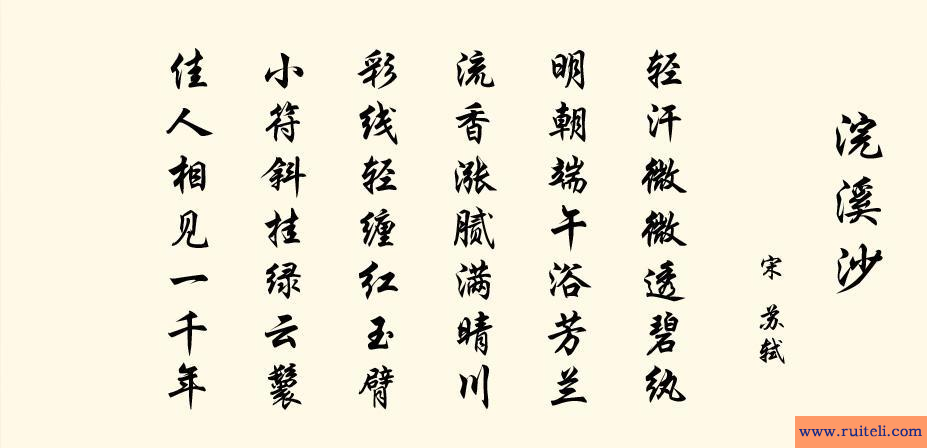 浣溪沙
宋 苏轼
轻汗微微透碧纨
明朝端午浴芳兰
流香涨腻满晴川
彩线轻缠红玉臂
小符斜挂绿云鬟
佳人相见一千年
www.ruiteli.com